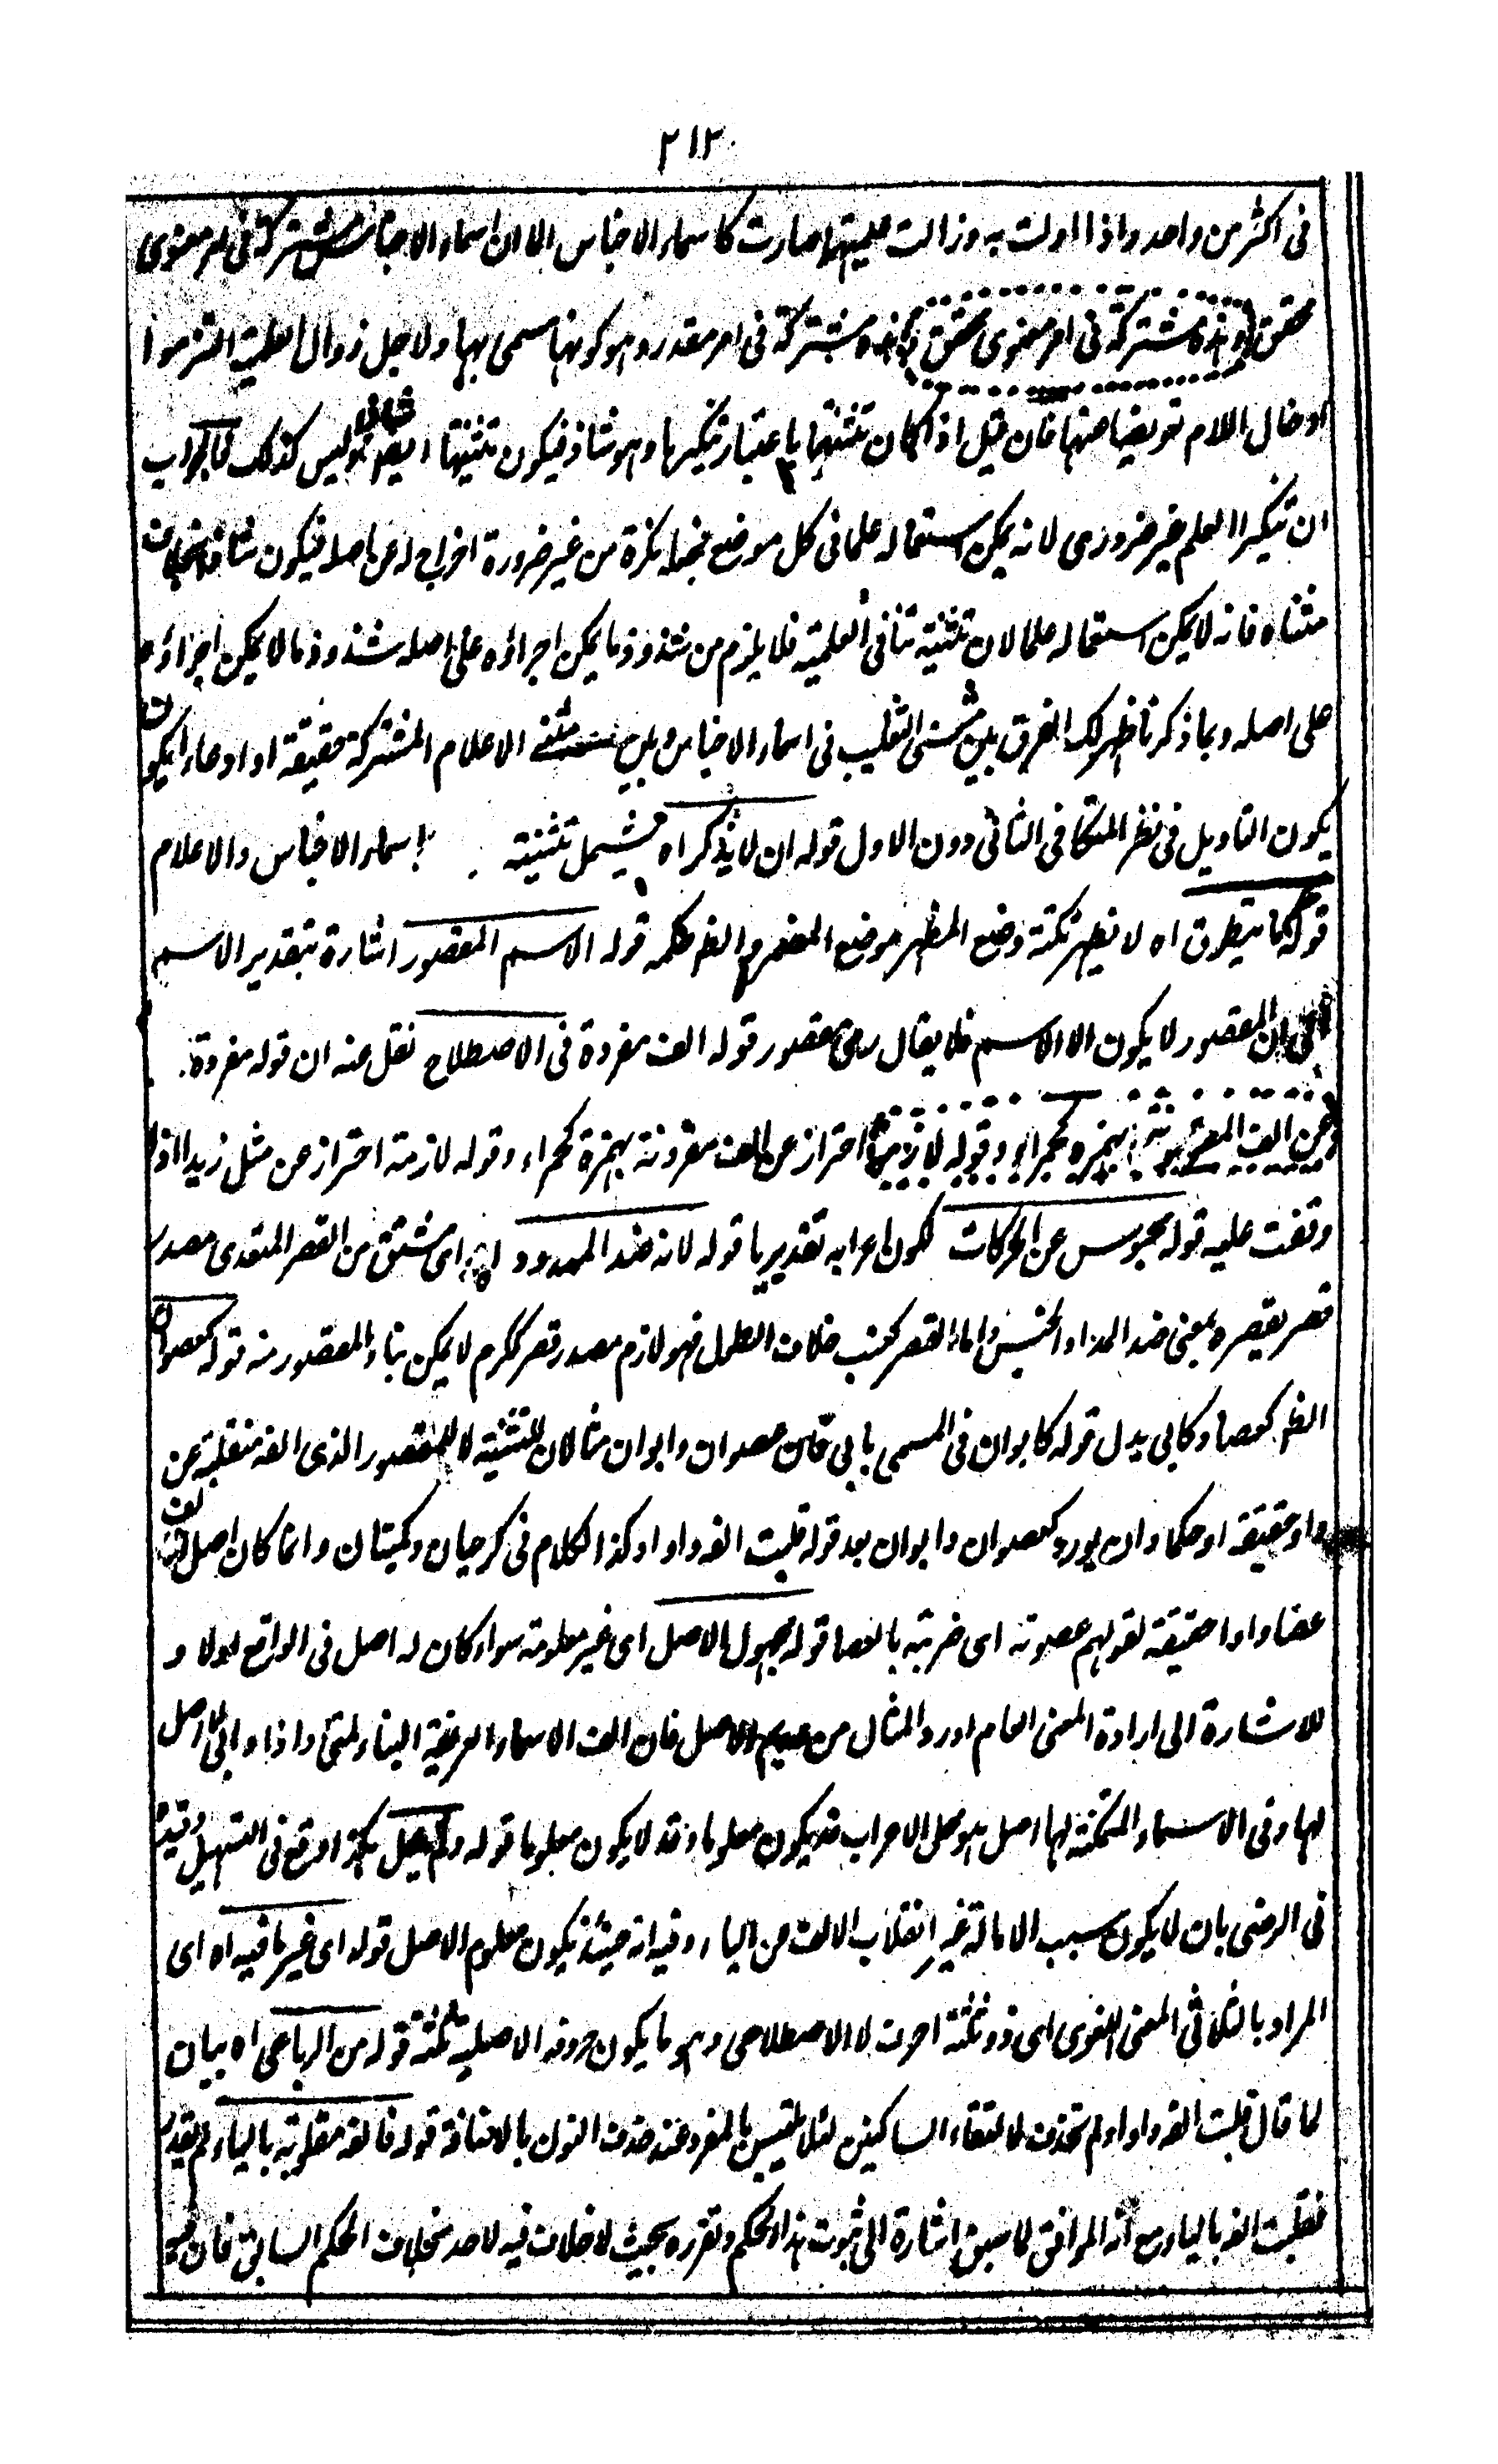 ٢١٢
فى اكثر من واحد واذا اولت به وزالت علميتها صارت كاسماء الاجناس الا ان اسماء الاجناس مشتركة فى امر معنوى
محقق وهذه مشتركة فى امر معنوى محقق وهذه مشتركة فى امر مقدر وهو كونها مسمى بها ولاجل زوال العلمية التزموا
ادخال اللام تعويضا عنها فان قيل اذا كان تثنيتها باعتبار تنكيرها وهو شاذ فيكون تثنيتها ايضا شاذا وليس كذلك فالجواب
ان تنكير العلم غير ضرورى لانه يمكن استعماله علما فى كل موضع فجعله نكرة من غير ضرورة اخراج له عن اصله فيكون شاذا بخلاف
مثناه فانه لا يمكن استعماله علما لان تثنيته تنافى العلمية فلا يلزم من شذوذ ما يمكن اجراؤه على اصله شذوذ ما لا يمكن اجراؤه
على اصله وبما ذكرنا ظهر لك الفرق بين مثنى التغليب فى اسماء الاجناس وبين مثنى الاعلام المشتركة حقيقة او ادعاء ايكون
يكون التاويل فى نظر المتكلم فى الثانى دون الاول قوله ان لا يذكر اه يشمل تثنيته اسماء الاجناس والاعلام
قوله كما يتطرق اه لا يظهر نكتة وضع المظهر موضع المضمر والظ حكمه قوله الاسم المقصور اشارة بتقدير الاسم
الى ان المقصور لا يكون الا الاسم فلا يقال رمى مقصور قوله الف مفردة فى الاصطلاح نقل عنه ان قوله مفردة
عن الف المقرونة بهمزه كحمراء وقوله لازمة احتراز عن الف مقرونة بهمزة كحمراء وقوله لازمة احتراز عن مثل زيدا اذا
وقفت عليه قوله محبوس عن الحركات لكون اعرابه تقديريا قوله لانه ضد الممدود اى مشتق من القصر المتعدى مصدر
قصر يقصره بمعنى ضد المد او الحبس واما القصر كعنب خلاف الطول فهو لازم مصدر قصر ككرم لا يمكن بناء المقصور منه قوله كعصوان
الظ كعصا وكابى بدل قوله كابوان فى المسمى بابى فان عصوان وابوان مثالان للتثنية لا للمقصور الذى الفه منقلبة عن
واو حقيقة او حكما وان يورد كعصوان وابوان بعد قوله قلبت الفه واوا وكذا الكلام فى كرحيان وكميتان وانما كان اصل الف
عصا واوا حقيقة لقولهم عصوته اى ضربته بالعصا قوله مجهول الاصل اى غير معلومة سواء كان له اصل فى الواقع اولا و
للاشارة الى ارادة المعنى العام اورد المثال من عديم الاصل فان الف الاسماء العريقة البناء كمتى واذا والى لا اصل
لها وفى الاسماء المتمكنة لها اصل هو محل الاعراب قد يكون معلوما وقد لا يكون معلوما قوله ولم يمل هكذا وقع فى التسهيل وقيد
فى الرضى بان لا يكون سبب الامالة غير انقلاب الالف من الياء وفيه انه حينئذ يكون معلوم الاصل قوله اى غير ما فيه اه اى
المراد بالثلاثى المعنى اللغوى اى ذو ثلثة احرف لا الاصطلاحى وهو ما يكون حروفه الاصلية ثلثة قوله من الرباعى اه بيان
لما قال قلبت الفه واوا ولم تحذف لالتقاء الساكنين لئلا يلتبس بالمفرد عند حذف النون بالاضافة قوله فالفه مقلوبة بالياء لم يقدر
فقلبت الفه بالياء مع انه الموافق لما سبق اشارة الى ثبوت هذا الحكم وتقرره بحيث لا خلاف فيه لاحد بخلاف الحكم السابق فان فيه